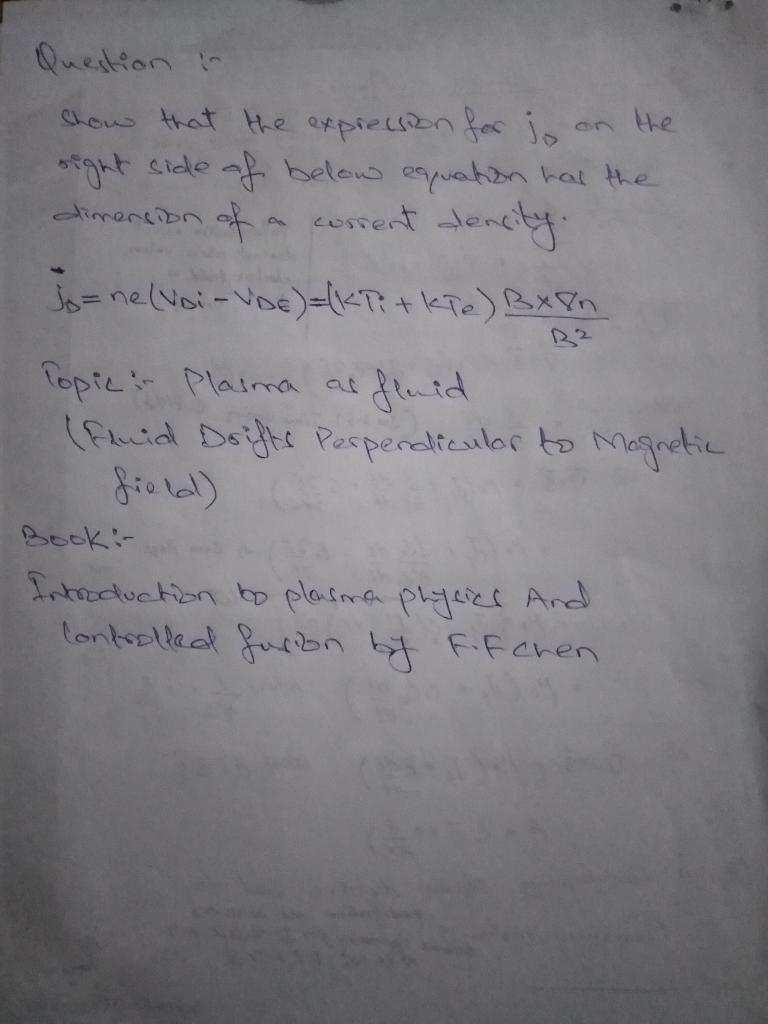 Question :-
Show that the expression for j_D on the
right side of below equation has the
dimension of a current density.
j_D = ne(V_Di - V_DE) = (KTi + KTe) B×∇n / B²
Topic :- Plasma as fluid
(Fluid Drifts Perpendicular to Magnetic
field)
Book :-
Introduction to plasma physics And
Controlled fusion by F.F chen